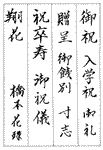 御祝 入学祝 御礼
贈呈 御餞別 寸志
祝卒寿 御祝儀
翔花 橋本花珠